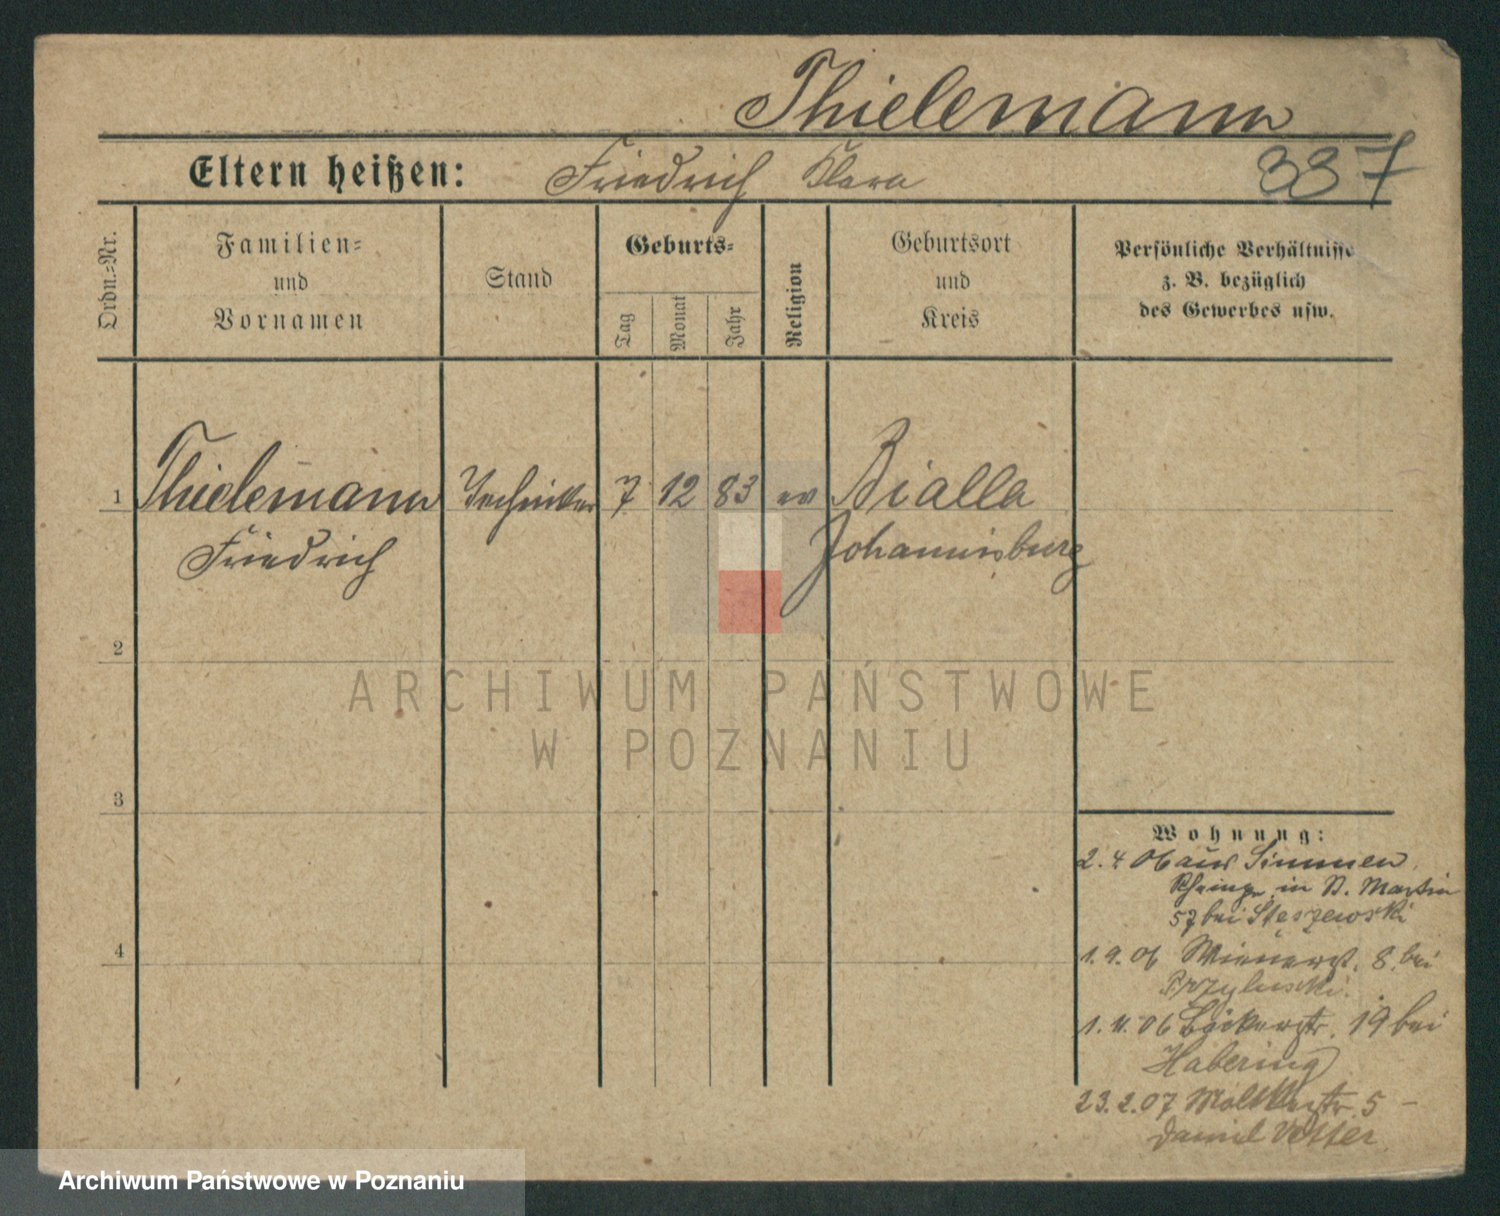 Thielemann
337
Eltern heißen: Friedrich Klara
Ordn.=Nr.
Familien=
und
Vornamen
Stand
Geburts=
Tag
Monat
Jahr
Religion
Geburtsort
und
Kreis
Persönliche Verhältnisse
z. B. bezüglich
des Gewerbes usw.
1 Thielemann Techniker 7 12 83 ev Bialla
Friedrich Johannisburg
2
ARCHIWUM PAŃSTWOWE
W POZNANIU
3
Wohnung:
2.4.06 aus Simmern
in St. Martin
57 bei Stęszewski
4
1.9.06 Wienerst. 8. bei
Przyluski.
1.11.06 Bäckerstr. 19 bei
Habering
23.2.07 Moltkestr. 5 -
Daniel
Archiwum Państwowe w Poznaniu